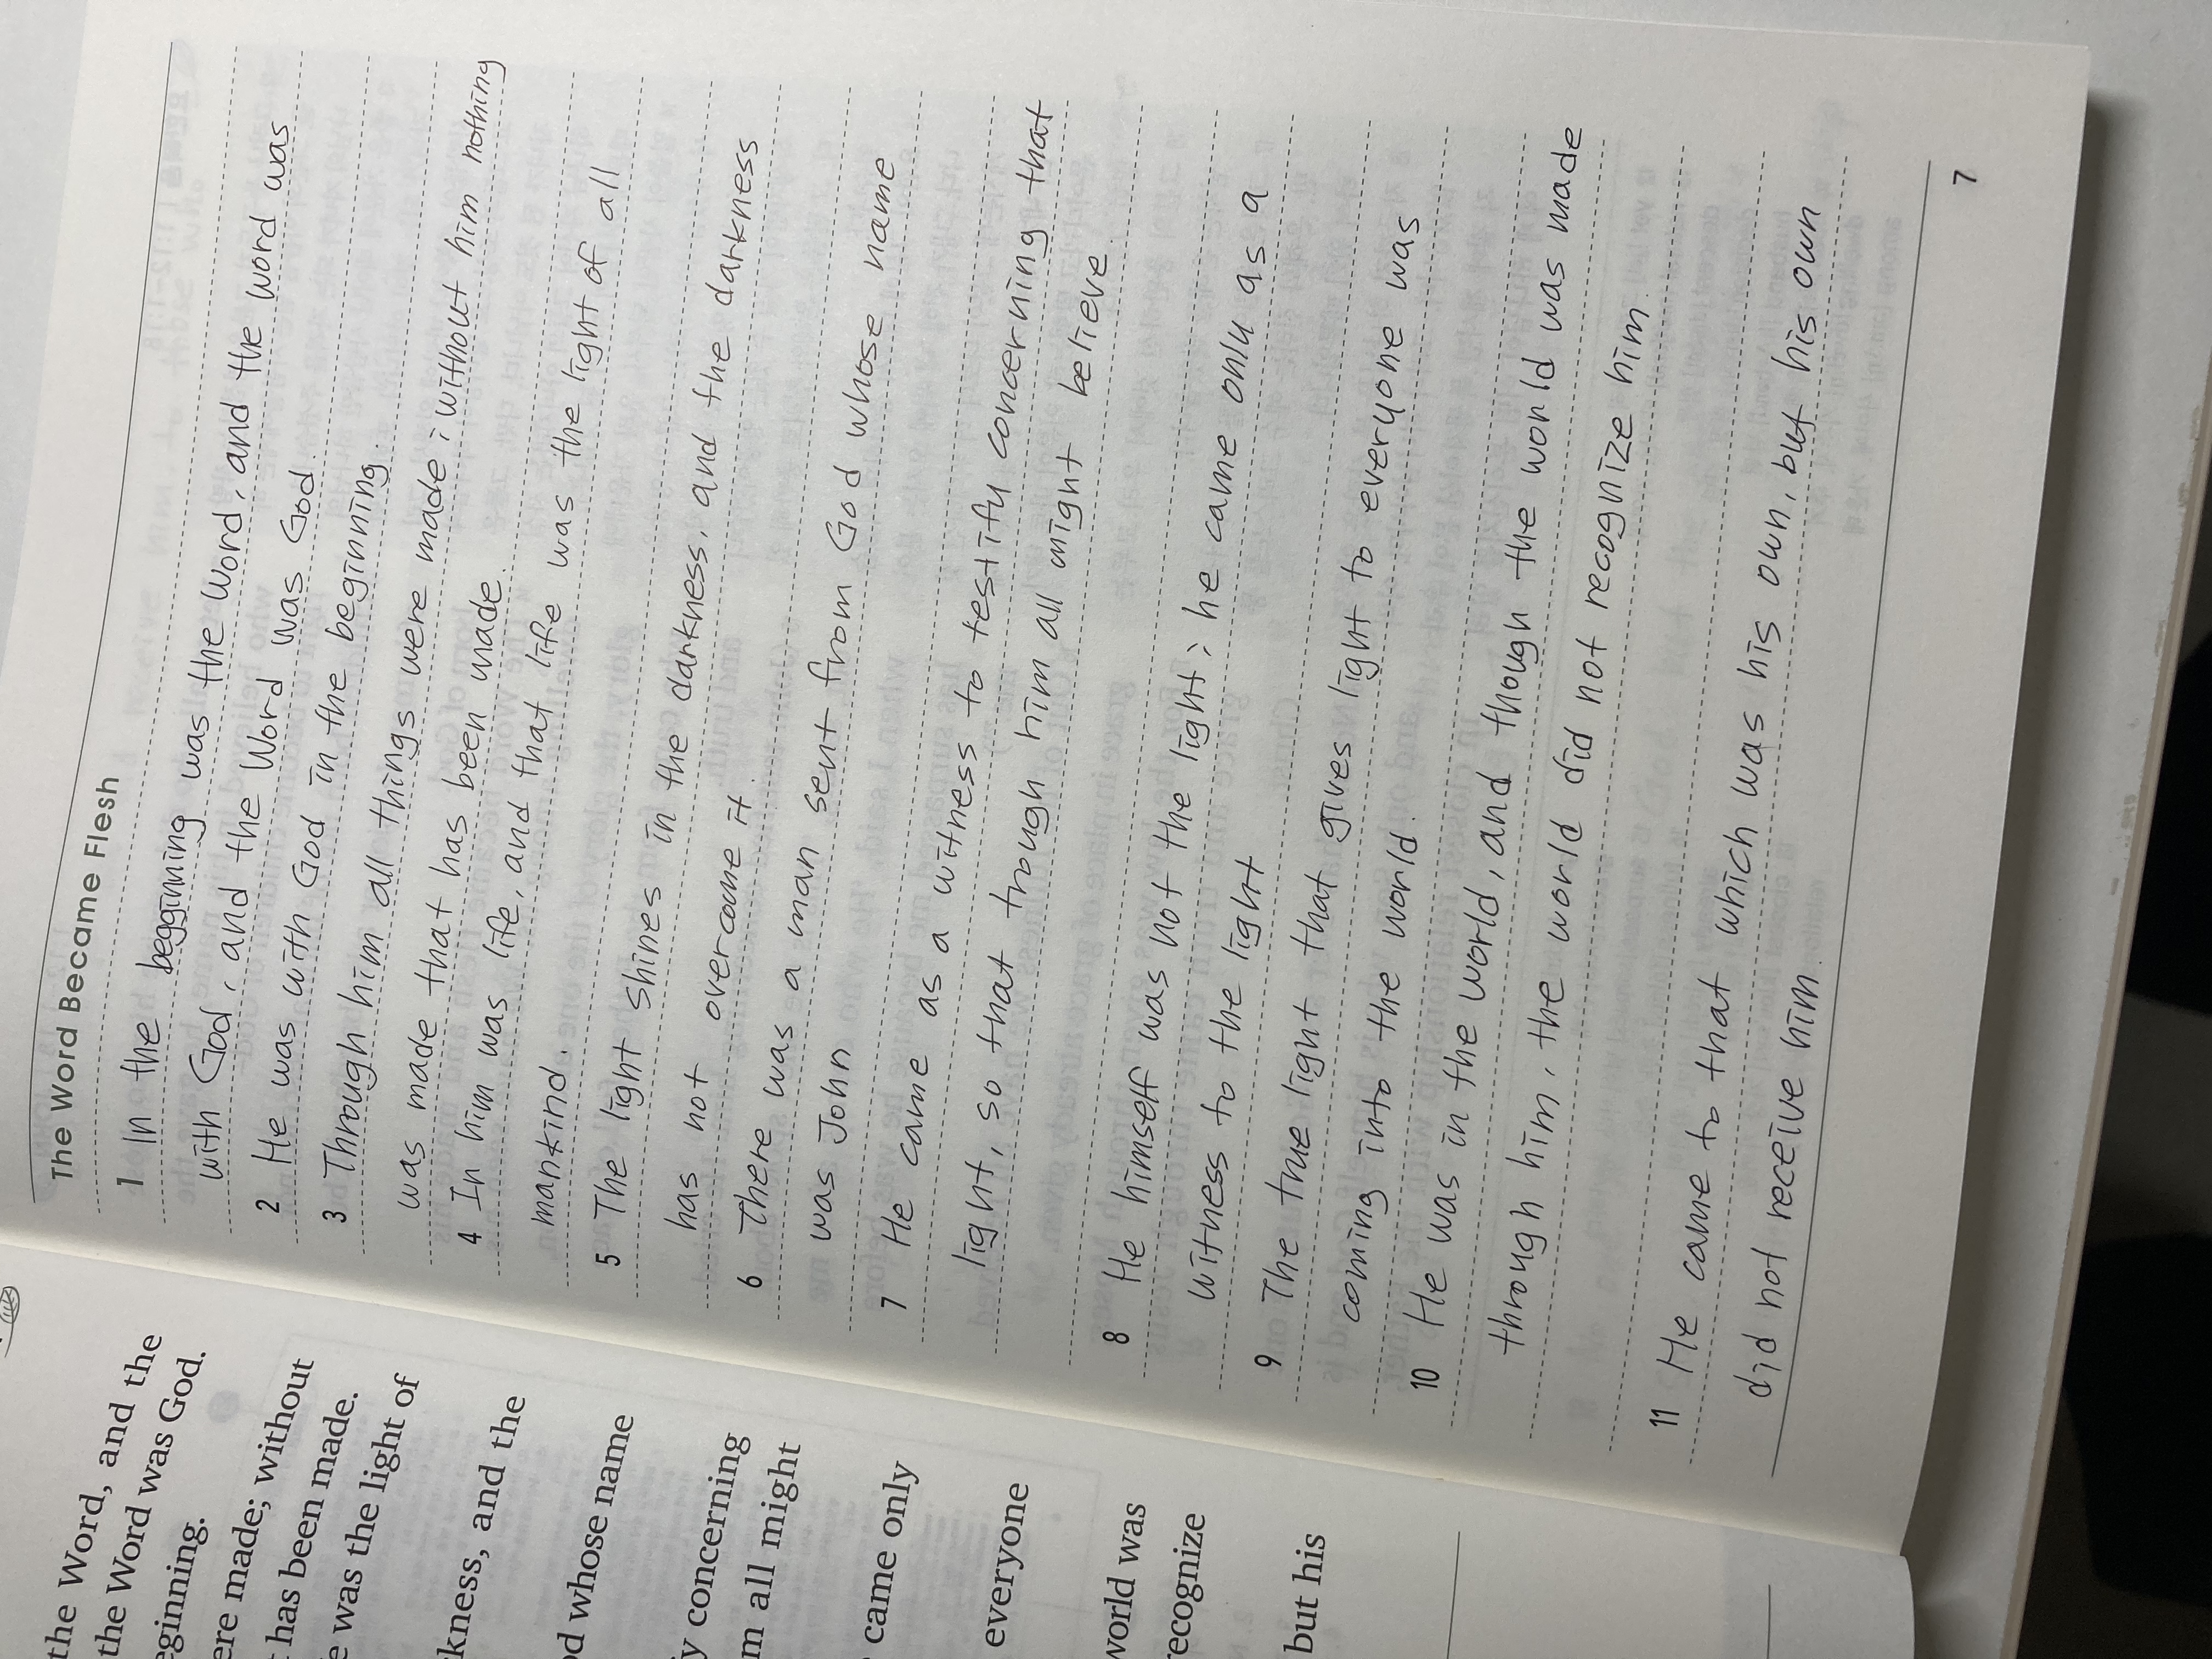 the Word, and the
the Word was God.
eginning.
ere made; without
has been made.
e was the light of
kness, and the
od whose name
y concerning
m all might
came only
everyone
world was
recognize
but his
The Word Became Flesh
1 In the beginning was the Word, and the word was
with God, and the Word was God.
2 He was with God in the beginning.
3 Through him all things were made; without him nothing
was made that has been made.
4 In him was life, and that life was the light of all
mankind.
5 The light shines in the darkness, and the darkness
has not overcome it.
6 There was a man sent from God whose name
was John
7 He came as a witness to testify concerning that
light, so that through him all might believe.
8 He himself was not the light; he came only as a
witness to the light
9 The true light that gives light to everyone was
coming into the world.
10 He was in the world, and though the world was made
through him, the world did not recognize him.
11 He came to that which was his own, but his own
did not receive him.
7